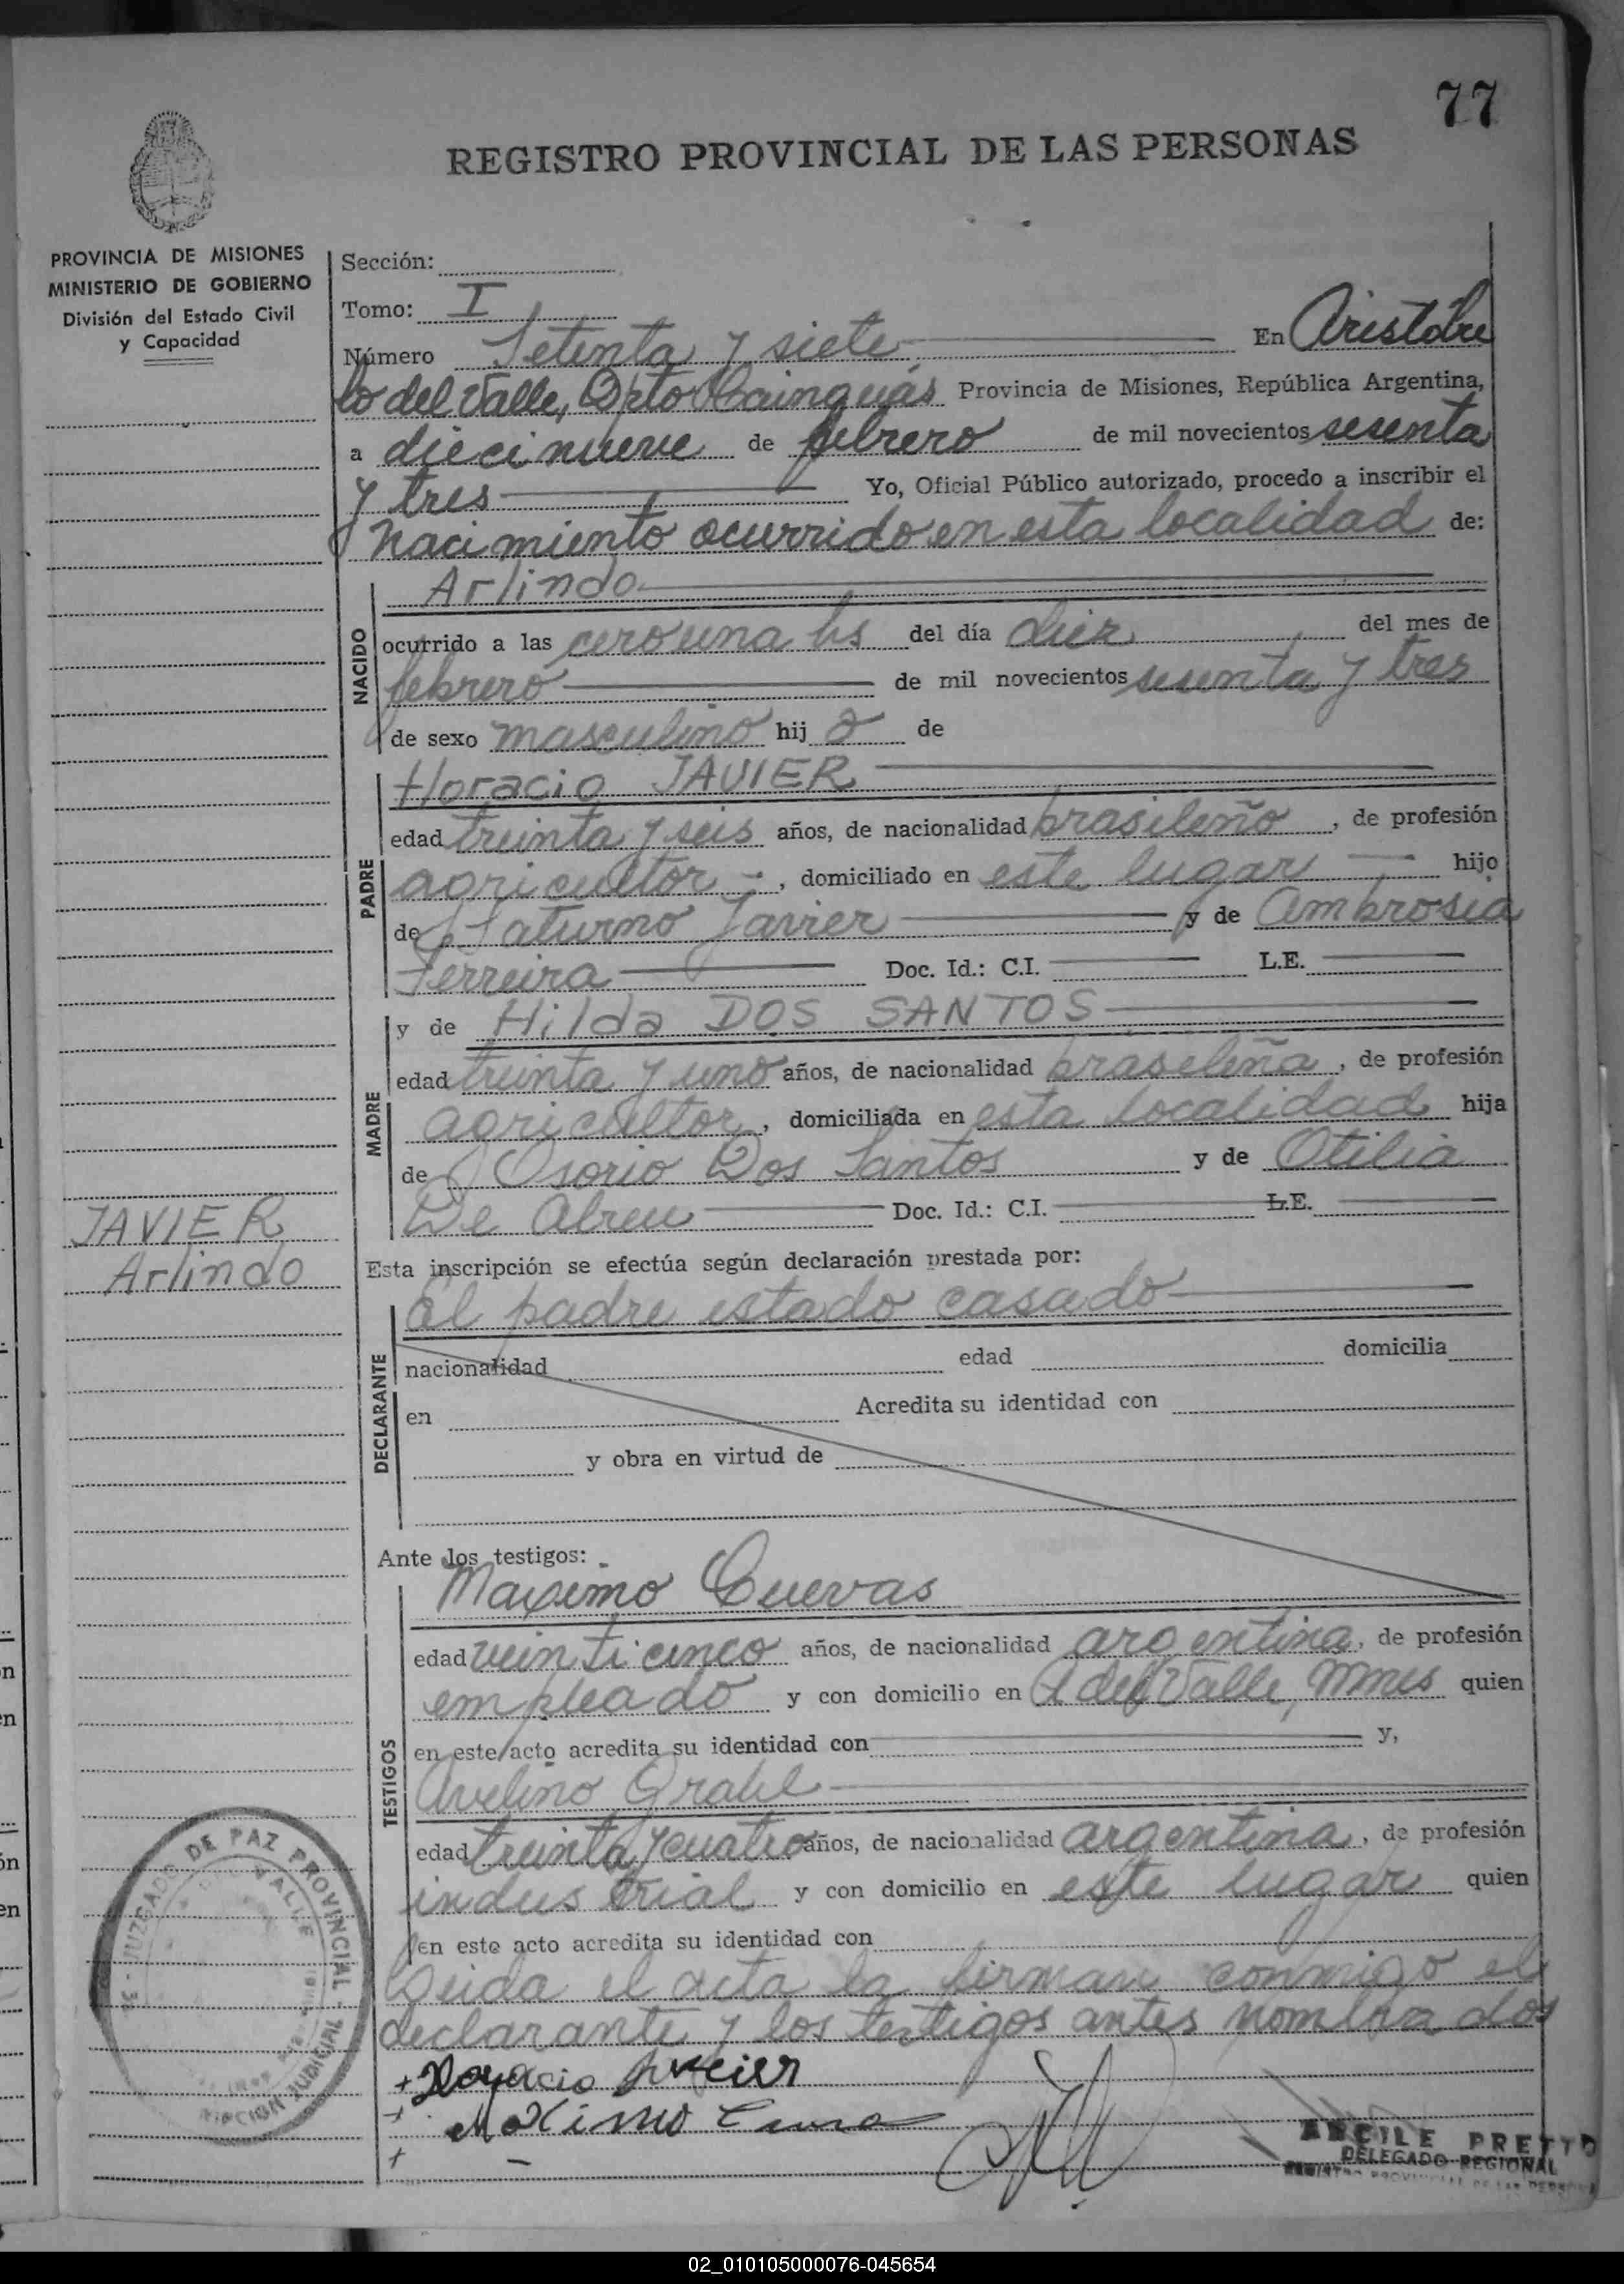 77
REGISTRO PROVINCIAL DE LAS PERSONAS
PROVINCIA DE MISIONES
MINISTERIO DE GOBIERNO
División del Estado Civil
y Capacidad
Sección:
Tomo: I
Número Setenta y siete En Aristóbu
lo del Valle, Dpto Cainguás Provincia de Misiones, República Argentina,
a diecinueve de febrero de mil novecientos sesenta
y tres Yo, Oficial Público autorizado, procedo a inscribir el
nacimiento ocurrido en esta localidad de:
NACIDO
Arlindo
ocurrido a las cero una hs del día diez del mes de
febrero de mil novecientos sesenta y tres
de sexo masculino hij o de
PADRE
Horacio JAVIER
edad treinta y seis años, de nacionalidad brasileño, de profesión
agricultor, domiciliado en este lugar hijo
de Saturno Javier y de Ambrosia
Ferreira Doc. Id.: C.I. L.E.
MADRE
y de Hilda DOS SANTOS
edad treinta y uno años, de nacionalidad brasileña, de profesión
agricultor, domiciliada en esta localidad hija
de Osorio Dos Santos y de Otilia
De Abreu Doc. Id.: C.I. L.E.
JAVIER
Arlindo
Esta inscripción se efectúa según declaración prestada por:
DECLARANTE
el padre estado casado
nacionalidad edad domicilia
en Acredita su identidad con
y obra en virtud de
Ante los testigos:
TESTIGOS
Maximo Cuevas
edad veinticinco años, de nacionalidad argentina, de profesión
empleado y con domicilio en A del Valle, Mnes quien
en este acto acredita su identidad con y,
Avelino Grahl
edad treinta y cuatro años, de nacionalidad argentina, de profesión
industrial y con domicilio en este lugar quien
en este acto acredita su identidad con
Leida el acta la firman conmigo el
declarante y los testigos antes nombrados
+ Horacio Javier
+ Maximo
+
JUZGADO DE PAZ PROVINCIAL
VALLE
JUDICIAL
PRETTO
DELEGADO REGIONAL
REGISTRO PROVINCIAL DE LAS PERSONAS
02_010105000076-045654